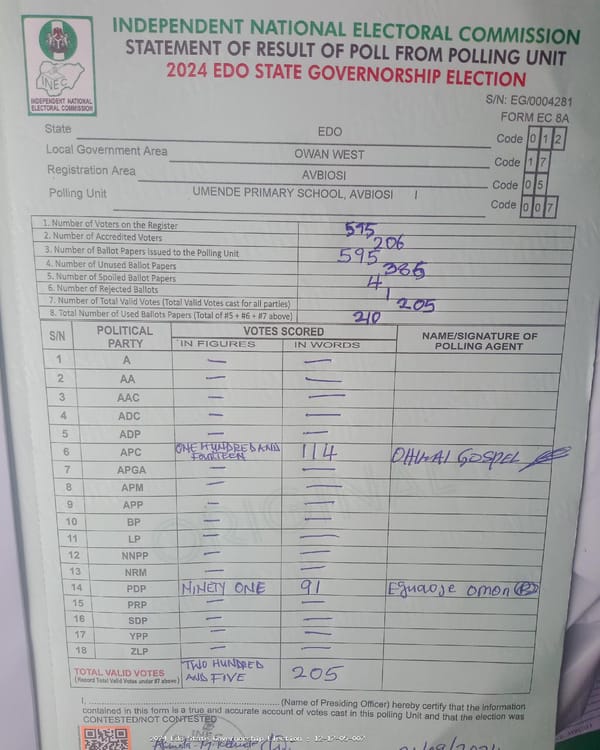 INDEPENDENT NATIONAL ELECTORAL COMMISSION
STATEMENT OF RESULT OF POLL FROM POLLING UNIT
2024 EDO STATE GOVERNORSHIP ELECTION
INEC
INDEPENDENT NATIONAL
ELECTORAL COMMISSION
S/N: EG/0004281
FORM EC 8A
State EDO Code 0 1 2
Local Government Area OWAN WEST Code 1 7
Registration Area AVBIOSI Code 0 5
Polling Unit UMENDE PRIMARY SCHOOL, AVBIOSI I Code 0 0 7
1. Number of Voters on the Register 595
2. Number of Accredited Voters 206
3. Number of Ballot Papers Issued to the Polling Unit 595
4. Number of Unused Ballot Papers 385
5. Number of Spoiled Ballot Papers 4
6. Number of Rejected Ballots 1
7. Number of Total Valid Votes (Total Valid Votes cast for all parties) 205
8. Total Number of Used Ballots Papers (Total of #5 + #6 + #7 above) 210
S/N POLITICAL PARTY VOTES SCORED NAME/SIGNATURE OF POLLING AGENT
IN FIGURES IN WORDS
1 A — —
2 AA — —
3 AAC — —
4 ADC — —
5 ADP — —
6 APC ONE HUNDRED AND FOURTEEN 114 GOSPEL
7 APGA — —
8 APM — —
9 APP — —
10 BP — —
11 LP — —
12 NNPP — —
13 NRM — —
14 PDP NINETY ONE 91 omon
15 PRP — —
16 SDP — —
17 YPP — —
18 ZLP — —
ORIGINAL
TOTAL VALID VOTES TWO HUNDRED AND FIVE 205
(Record Total Valid Votes under #7 above)
I, (Name of Presiding Officer) hereby certify that the information
contained in this form is a true and accurate account of votes cast in this polling unit and that the election was
CONTESTED/NOT CONTESTED
2024 Edo State Governorship Election : 12-17-05-007